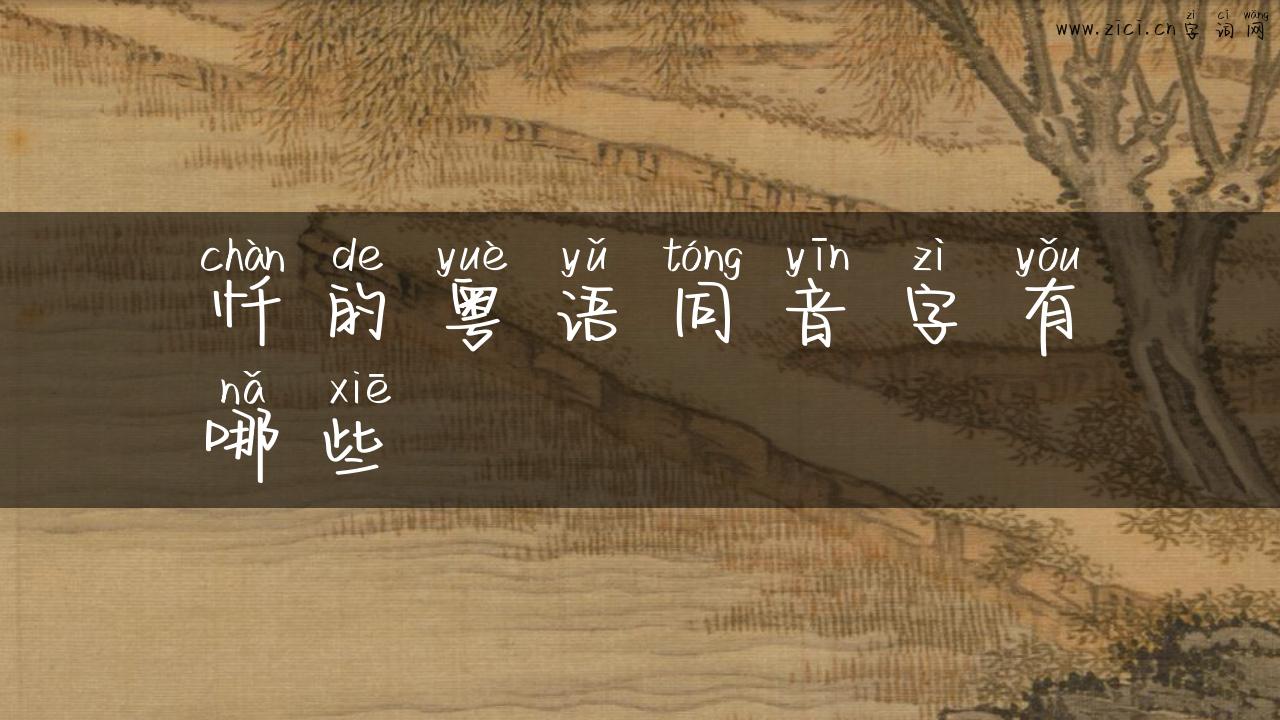 zì cí wǎng
www.zici.cn字词网
chàn de yuè yǔ tóng yīn zì yǒu
忏的粤语同音字有
nǎ xiē
哪些